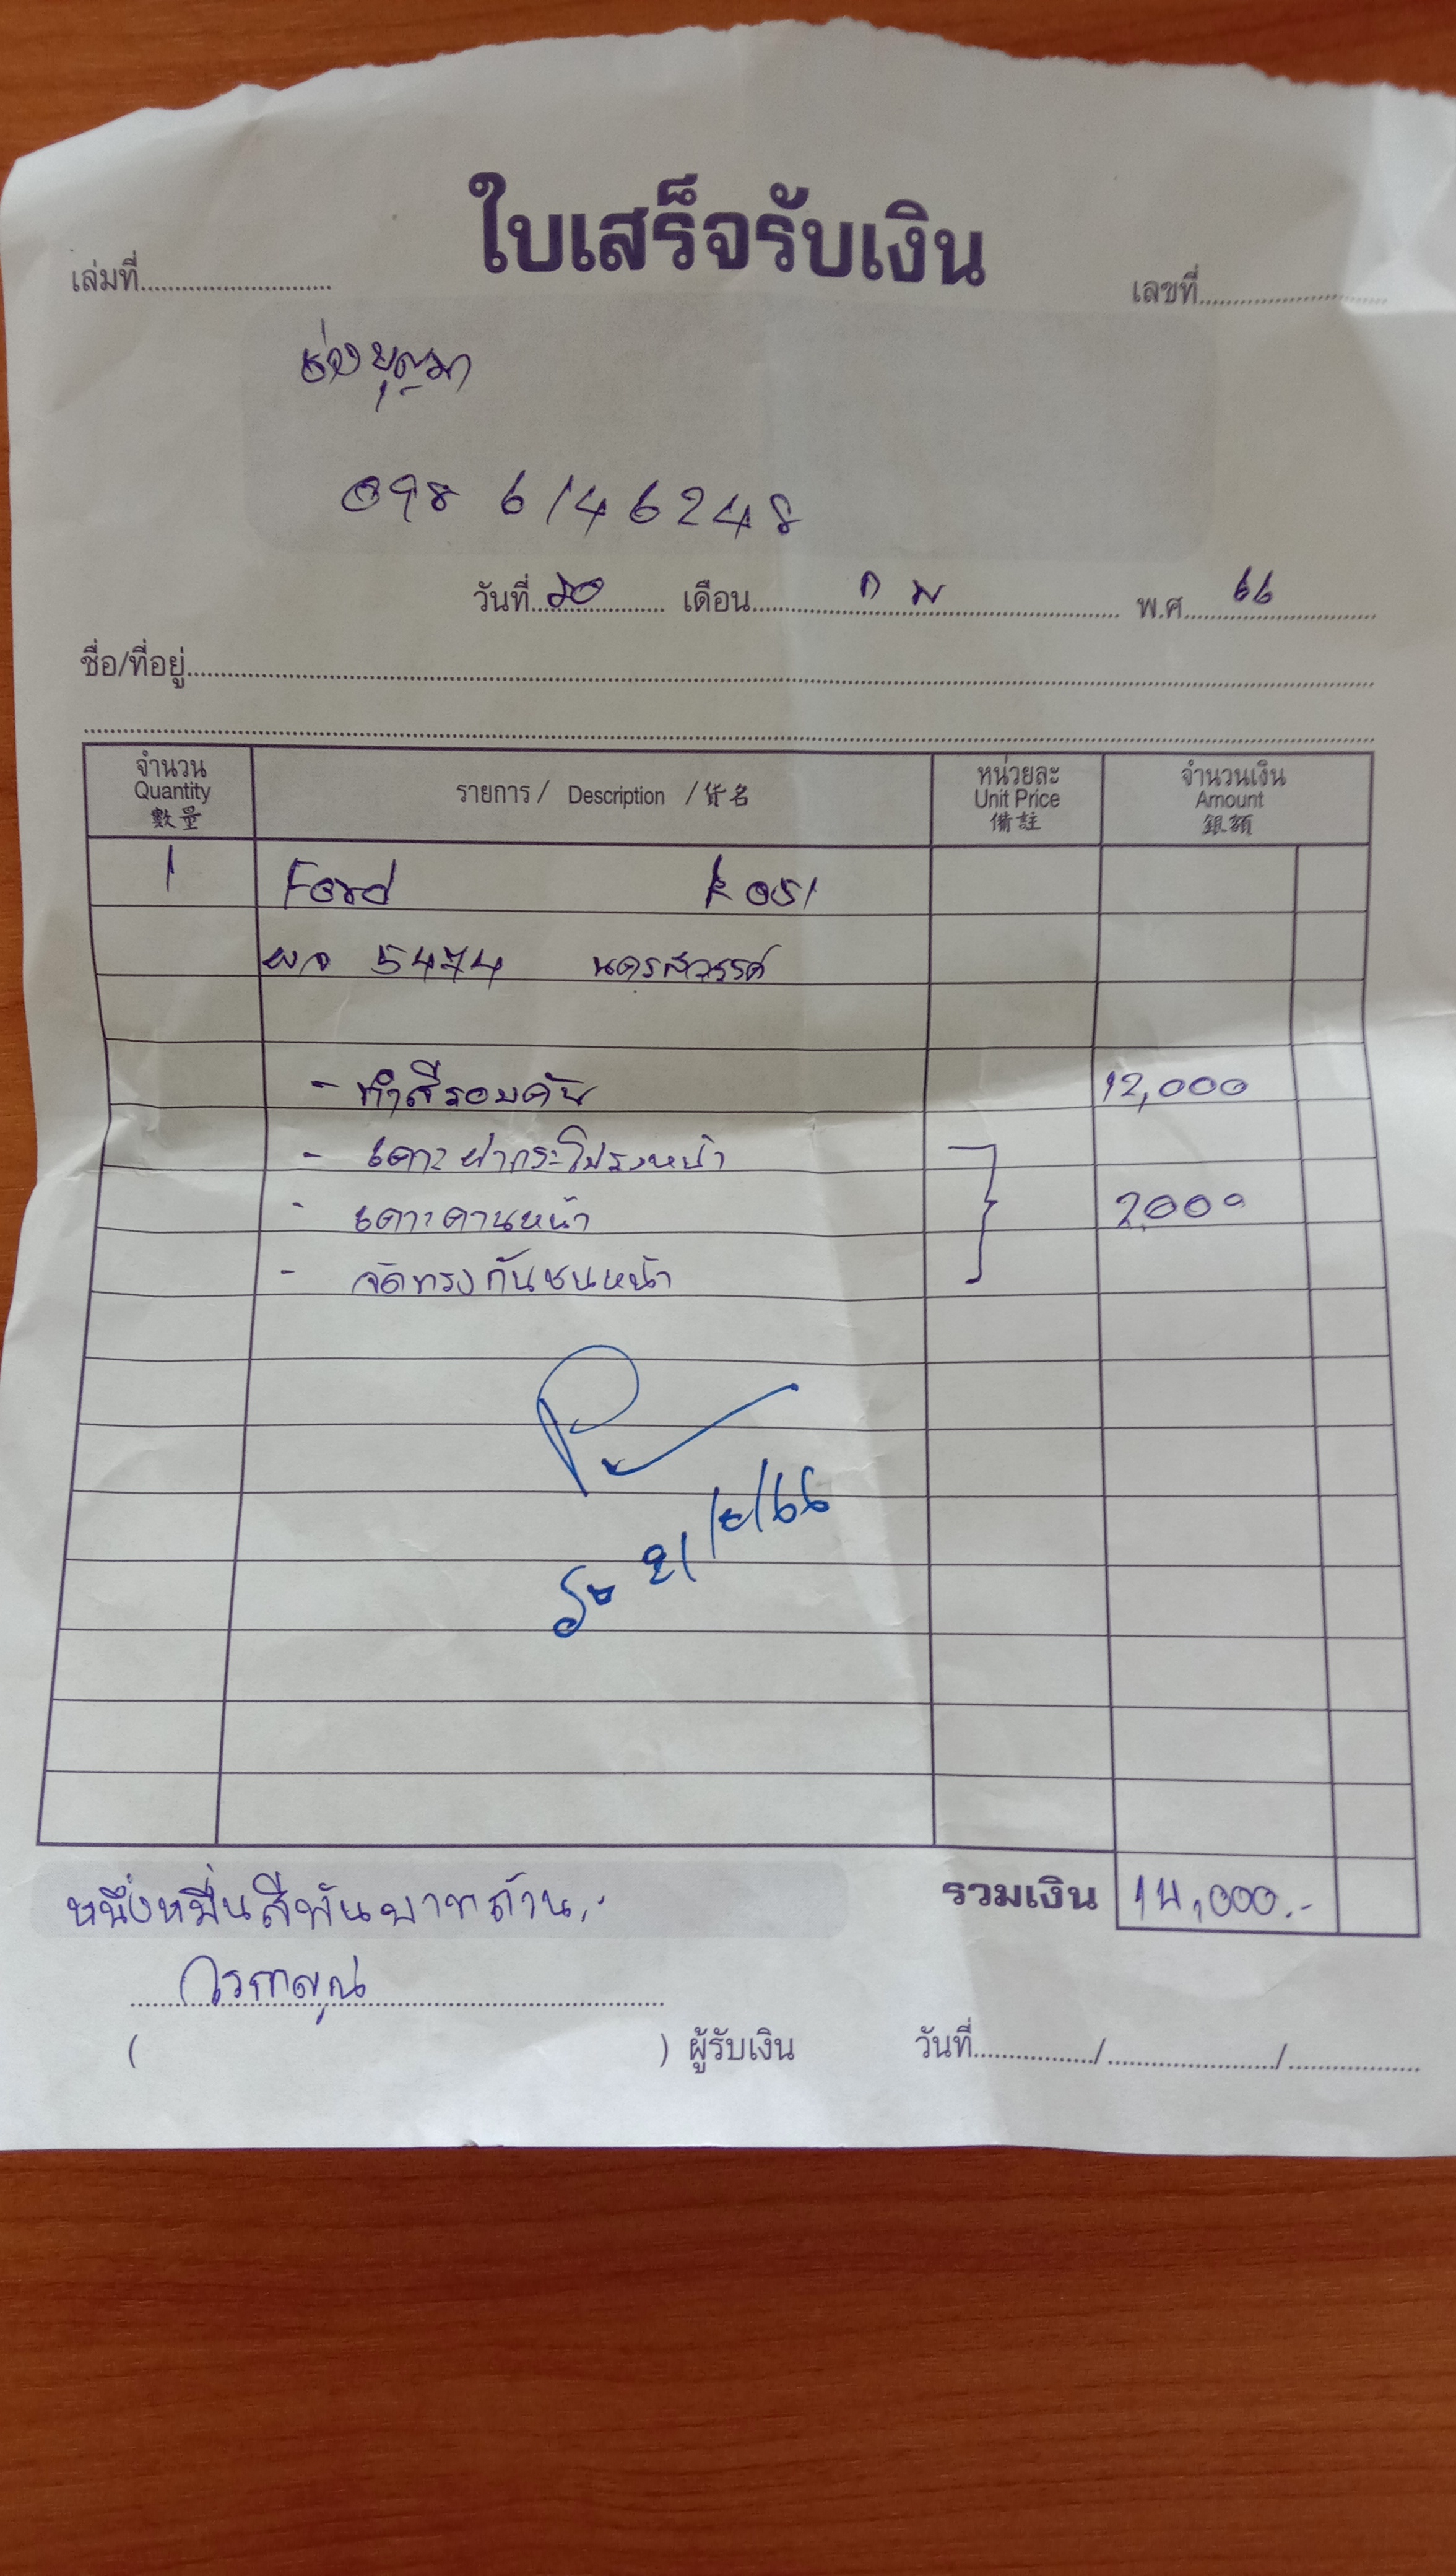 ใบเสร็จรับเงิน
เล่มที่ เลขที่
ช่างบุญมา
098 6146248
วันที่ 20 เดือน ก พ พ.ศ 66
ชื่อ/ที่อยู่
จำนวน รายการ / Description / 货名 หน่วยละ จำนวนเงิน
Quantity Unit Price Amount
數量 備註 銀額
1 Ford R 051
ผจ 5474 นครสวรรค์
- ทำสีรอบคัน 12,000
- เคาะฝากระโปรงหน้า
- เคาะคานหน้า 2,000
- จัดทรงกันชนหน้า
21/2/66
หนึ่งหมื่นสี่พันบาทถ้วน.- รวมเงิน 14,000.-
( ) ผู้รับเงิน วันที่ / /